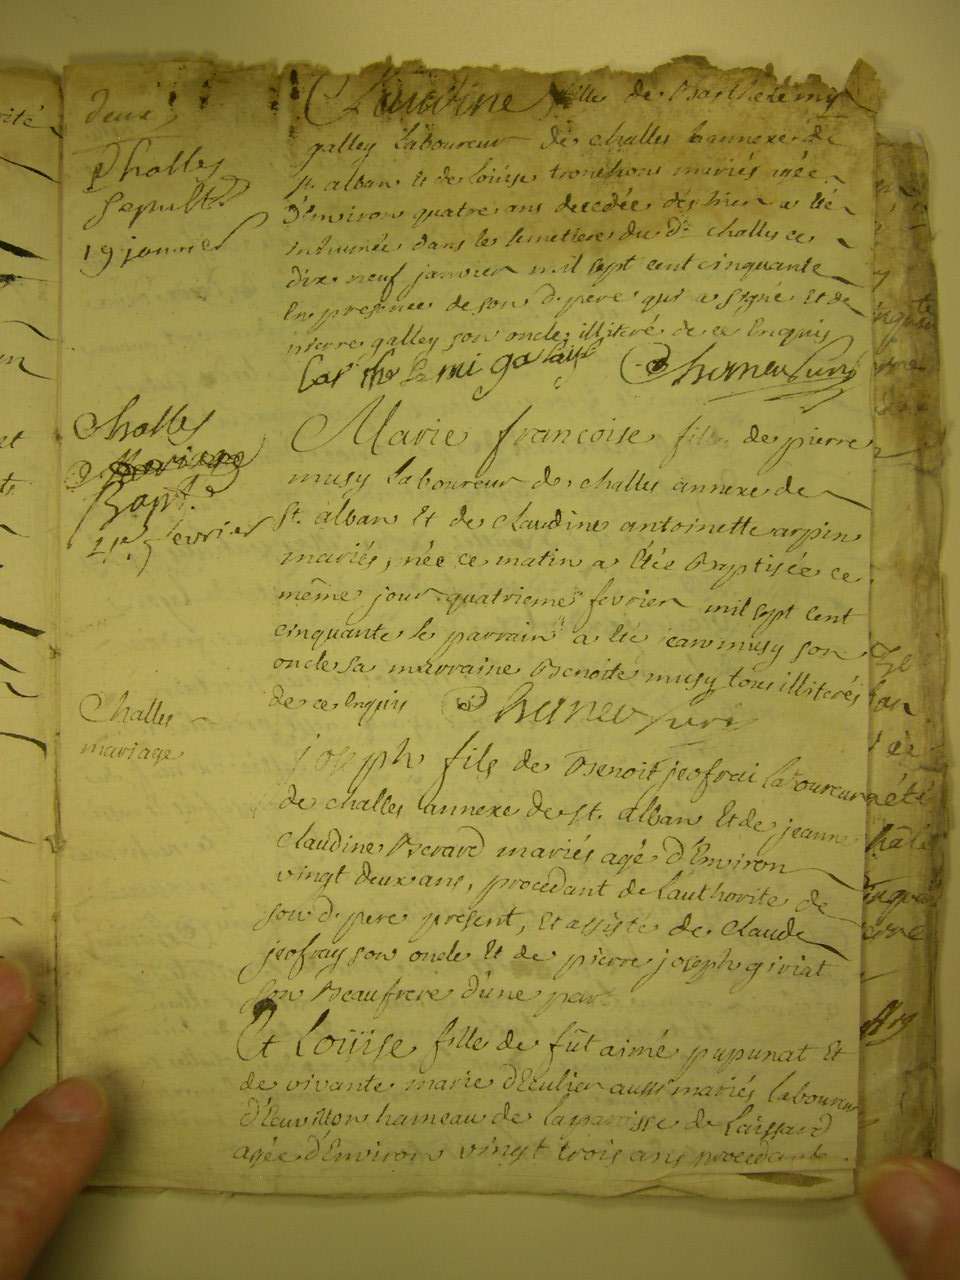 deux
Challes
Sepult.re
19 janvier
Claudine fille de Barthelemi
galley laboureur de challes annexe de
st. alban et de louise tronchon mariés agée
d'environ quatre ans decedée des hier a été
inhumée dans le semetiere du dt challes ce
dix neuf janvier mil sept cent cinquante
en presence de son d. pere qui a signé et de
pierre galley son oncle illiteré de ce enquis
Challes
mariage
Bapt.e
4e fevrier
Marie francoise fille de pierre
musy laboureur de challes annexe de
st. alban et de claudine antoinette arpin
mariés, née ce matin a étée Baptisée ce
même jour quatrieme fevrier mil sept cent
cinquante le parrain a été jean musy son
oncle la marraine Benoite musy tous illiterés
de ce enquis
Challes
mariage
joseph fils de Benoit jeofrai laboureur
de challes annexe de st. alban et de jeanne
claudine Berard mariés agé d'environ
vingt deux ans, procedant de l'authorité de
son d. pere present, et assisté de claude
jeofray son oncle et de pierre joseph giriat
son Beaufrere d'une part
Et Loüise fille de fût aimé pupunat et
de vivante marie d'Eculier aussi mariés laboureur
hameau de la parroisse de Laissard
agée d'environ vingt trois ans procedante